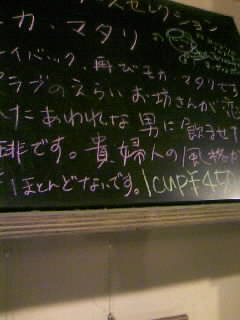 スセレクション
カ、マタリ
イバック、再びモカマタリです
ラブのえらいお坊さんが恋
たあわれな男に飲ませ
琲です。貴婦人の風格が
ほとんどないです。1cup¥450